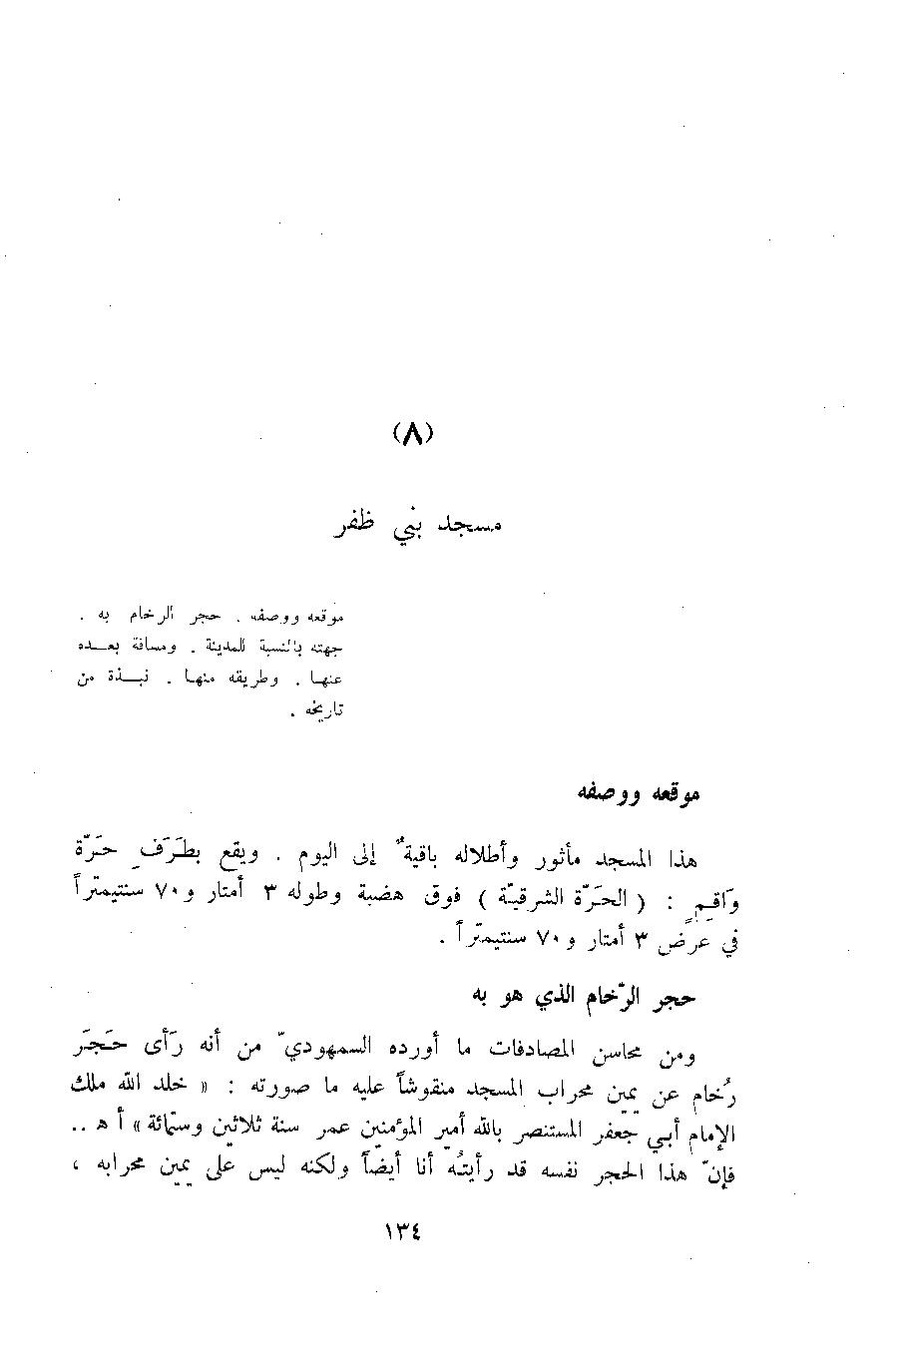 (٨)
مسجد بني ظفر
موقعه ووصفه . حجر الرخام به .
جهته بالنسبة للمدينة . ومسافة بعـــده
عنهـا . وطريقه منهـا . نبـــذة من
تاريخه .
موقعه ووصفه
هذا المسجد مأثور وأطلاله باقيةٌ إلى اليوم . ويقع بطَرَفِ حَرَّة
وَاقِمٍ : ( الحَرّة الشرقيّة ) فوق هضبة وطوله ٣ أمتار و٧٠ سنتيمتراً
في عرض ٣ أمتار و٧٠ سنتيمتراً .
حجر الرّخام الذي هو به
ومن محاسن المصادفات ما أورده السمهوديّ من أنه رَأى حَجَر
رُخام عن يمين محراب المسجد منقوشاً عليه ما صورته : « خلد الله ملك
الإمام أبي جعفر المستنصر بالله أمير المؤمنين عمر سنة ثلاثين وستمّائة » أ ﻫ ..
فإنّ هذا الحجر نفسه قد رأيتُه أنا أيضاً ولكنه ليس على يمين محرابه ،
١٣٤